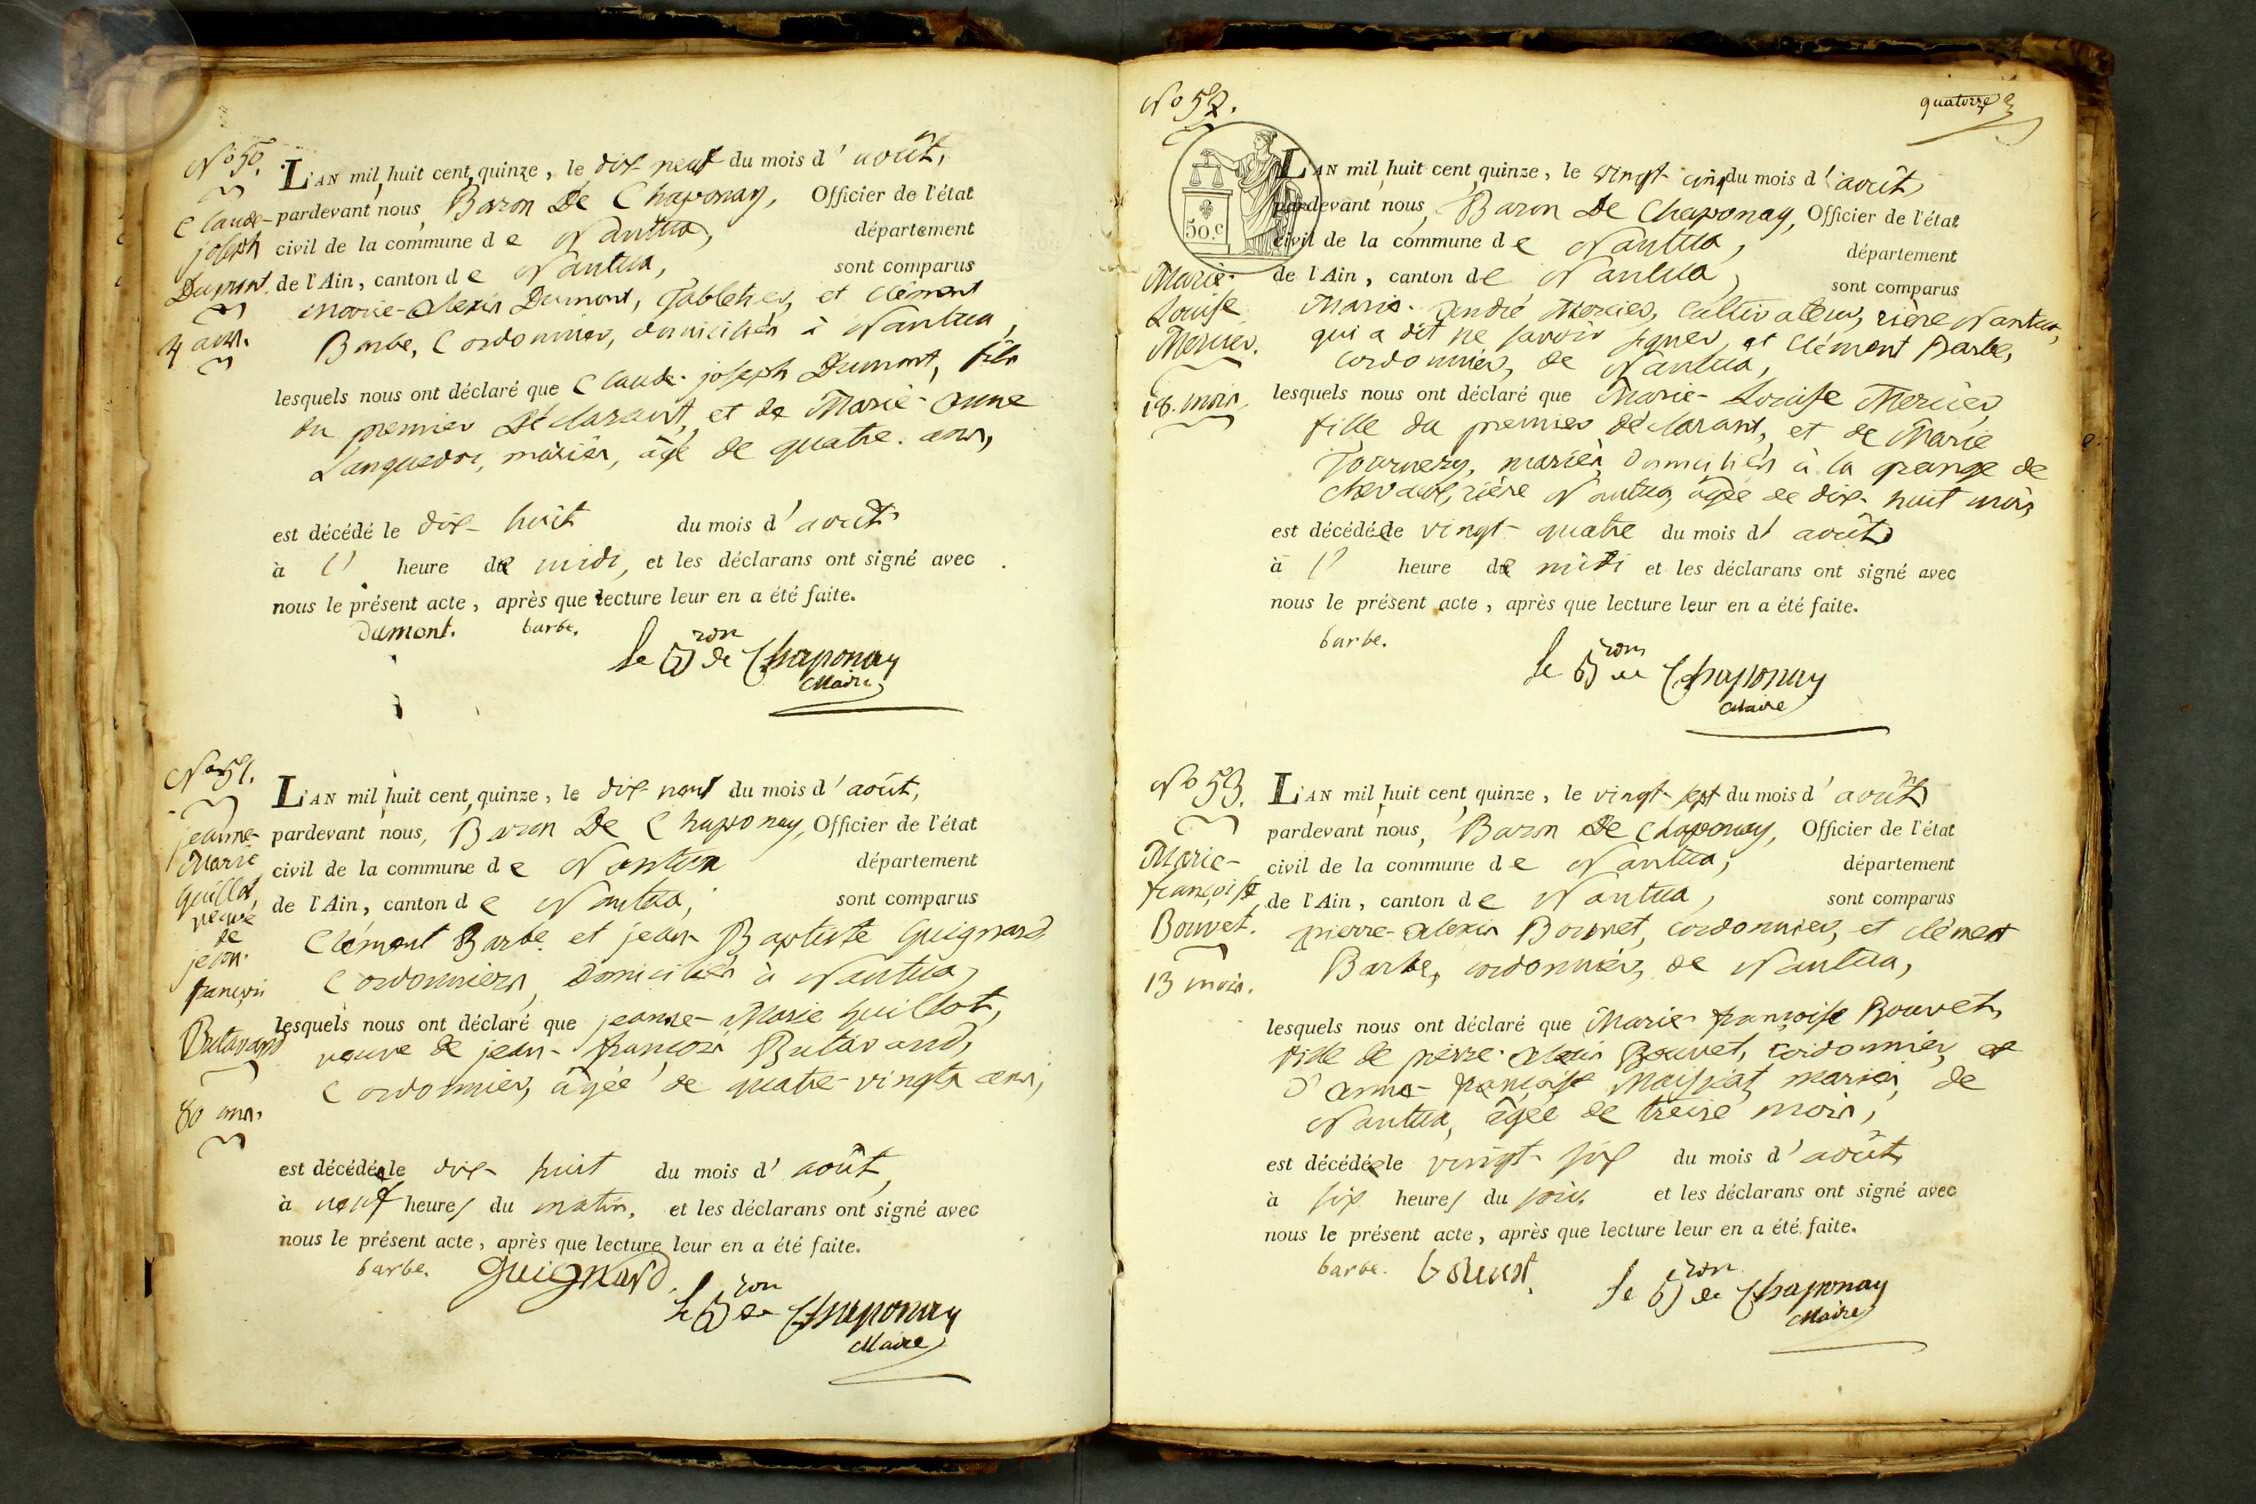 No 50.
Claude-
joseph
Dumont.
4 ans.
L'AN mil huit cent quinze, le dix neuf du mois d'août,
pardevant nous, Baron De Chaponay, Officier de l'état
civil de la commune de Nantua, département
de l'Ain, canton de Nantua, sont comparus
Marie-Alexis Dumont, Tabletier, et Clément
Barbe, Cordonnier, domiciliés à Nantua,
lesquels nous ont déclaré que Claude-joseph Dumont, fils
du premier Déclarant, et de Marie-Anne
Languedoc, mariés, âgé de quatre ans,
est décédé le dix-huit du mois d'août
à l' heure de midi, et les déclarans ont signé avec
nous le présent acte, après que lecture leur en a été faite.
Dumont. barbe.
le Bron de Chaponay
Maire
No 51.
jeanne-
Marie
Guillot,
veuve
de
jean-
françois
Butavand
80 ans.
L'AN mil huit cent quinze, le dix neuf du mois d'août,
pardevant nous, Baron De Chaponay, Officier de l'état
civil de la commune de Nantua département
de l'Ain, canton de Nantua, sont comparus
Clément Barbe et jean-Baptiste Guignard
Cordonniers, domiciliés à Nantua,
lesquels nous ont déclaré que jeanne-Marie Guillot,
veuve de jean-françois Butavand,
Cordonnier, âgée de quatre-vingts ans,
est décédée le dix-huit du mois d'août,
à neuf heures du matin, et les déclarans ont signé avec
nous le présent acte, après que lecture leur en a été faite.
barbe. Guignard.
le Bron de Chaponay
Maire
quatorze
No 52.
50.c
Marie-
Louise
Mercier.
18. mois.
L'AN mil huit cent quinze, le vingt cinq du mois d'août
pardevant nous, Baron De Chaponay, Officier de l'état
civil de la commune de Nantua, département
de l'Ain, canton de Nantua, sont comparus
Marie-André Mercier, Cultivateur, rière Nantua,
qui a dit ne savoir signer, et Clément Barbe,
cordonnier, de Nantua,
lesquels nous ont déclaré que Marie-Louise Mercier,
fille du premier déclarant, et de Marie
Tournery, mariés, domiciliés à la grange de
Chevaux, rière Nantua, âgée de dix-huit mois,
est décédée le vingt-quatre du mois d'août
à l' heure de midi et les déclarans ont signé avec
nous le présent acte, après que lecture leur en a été faite.
barbe.
le Bron de Chaponay
Maire
No 53.
Marie-
françoise
Bouvet.
13 mois.
L'AN mil huit cent quinze, le vingt-sept du mois d'août
pardevant nous, Baron De Chaponay, Officier de l'état
civil de la commune de Nantua, département
de l'Ain, canton de Nantua, sont comparus
pierre-Alexis Bouvet, cordonnier, et Clément
Barbe, cordonnier, de Nantua,
lesquels nous ont déclaré que Marie-françoise Bouvet,
fille de pierre-Alexis Bouvet, cordonnier, et
d'anne-françoise Maissiat, mariés, de
Nantua, âgée de treize mois,
est décédée le vingt-six du mois d'août
à six heures du soir, et les déclarans ont signé avec
nous le présent acte, après que lecture leur en a été faite.
barbe. bouvet.
le Bron de Chaponay
Maire